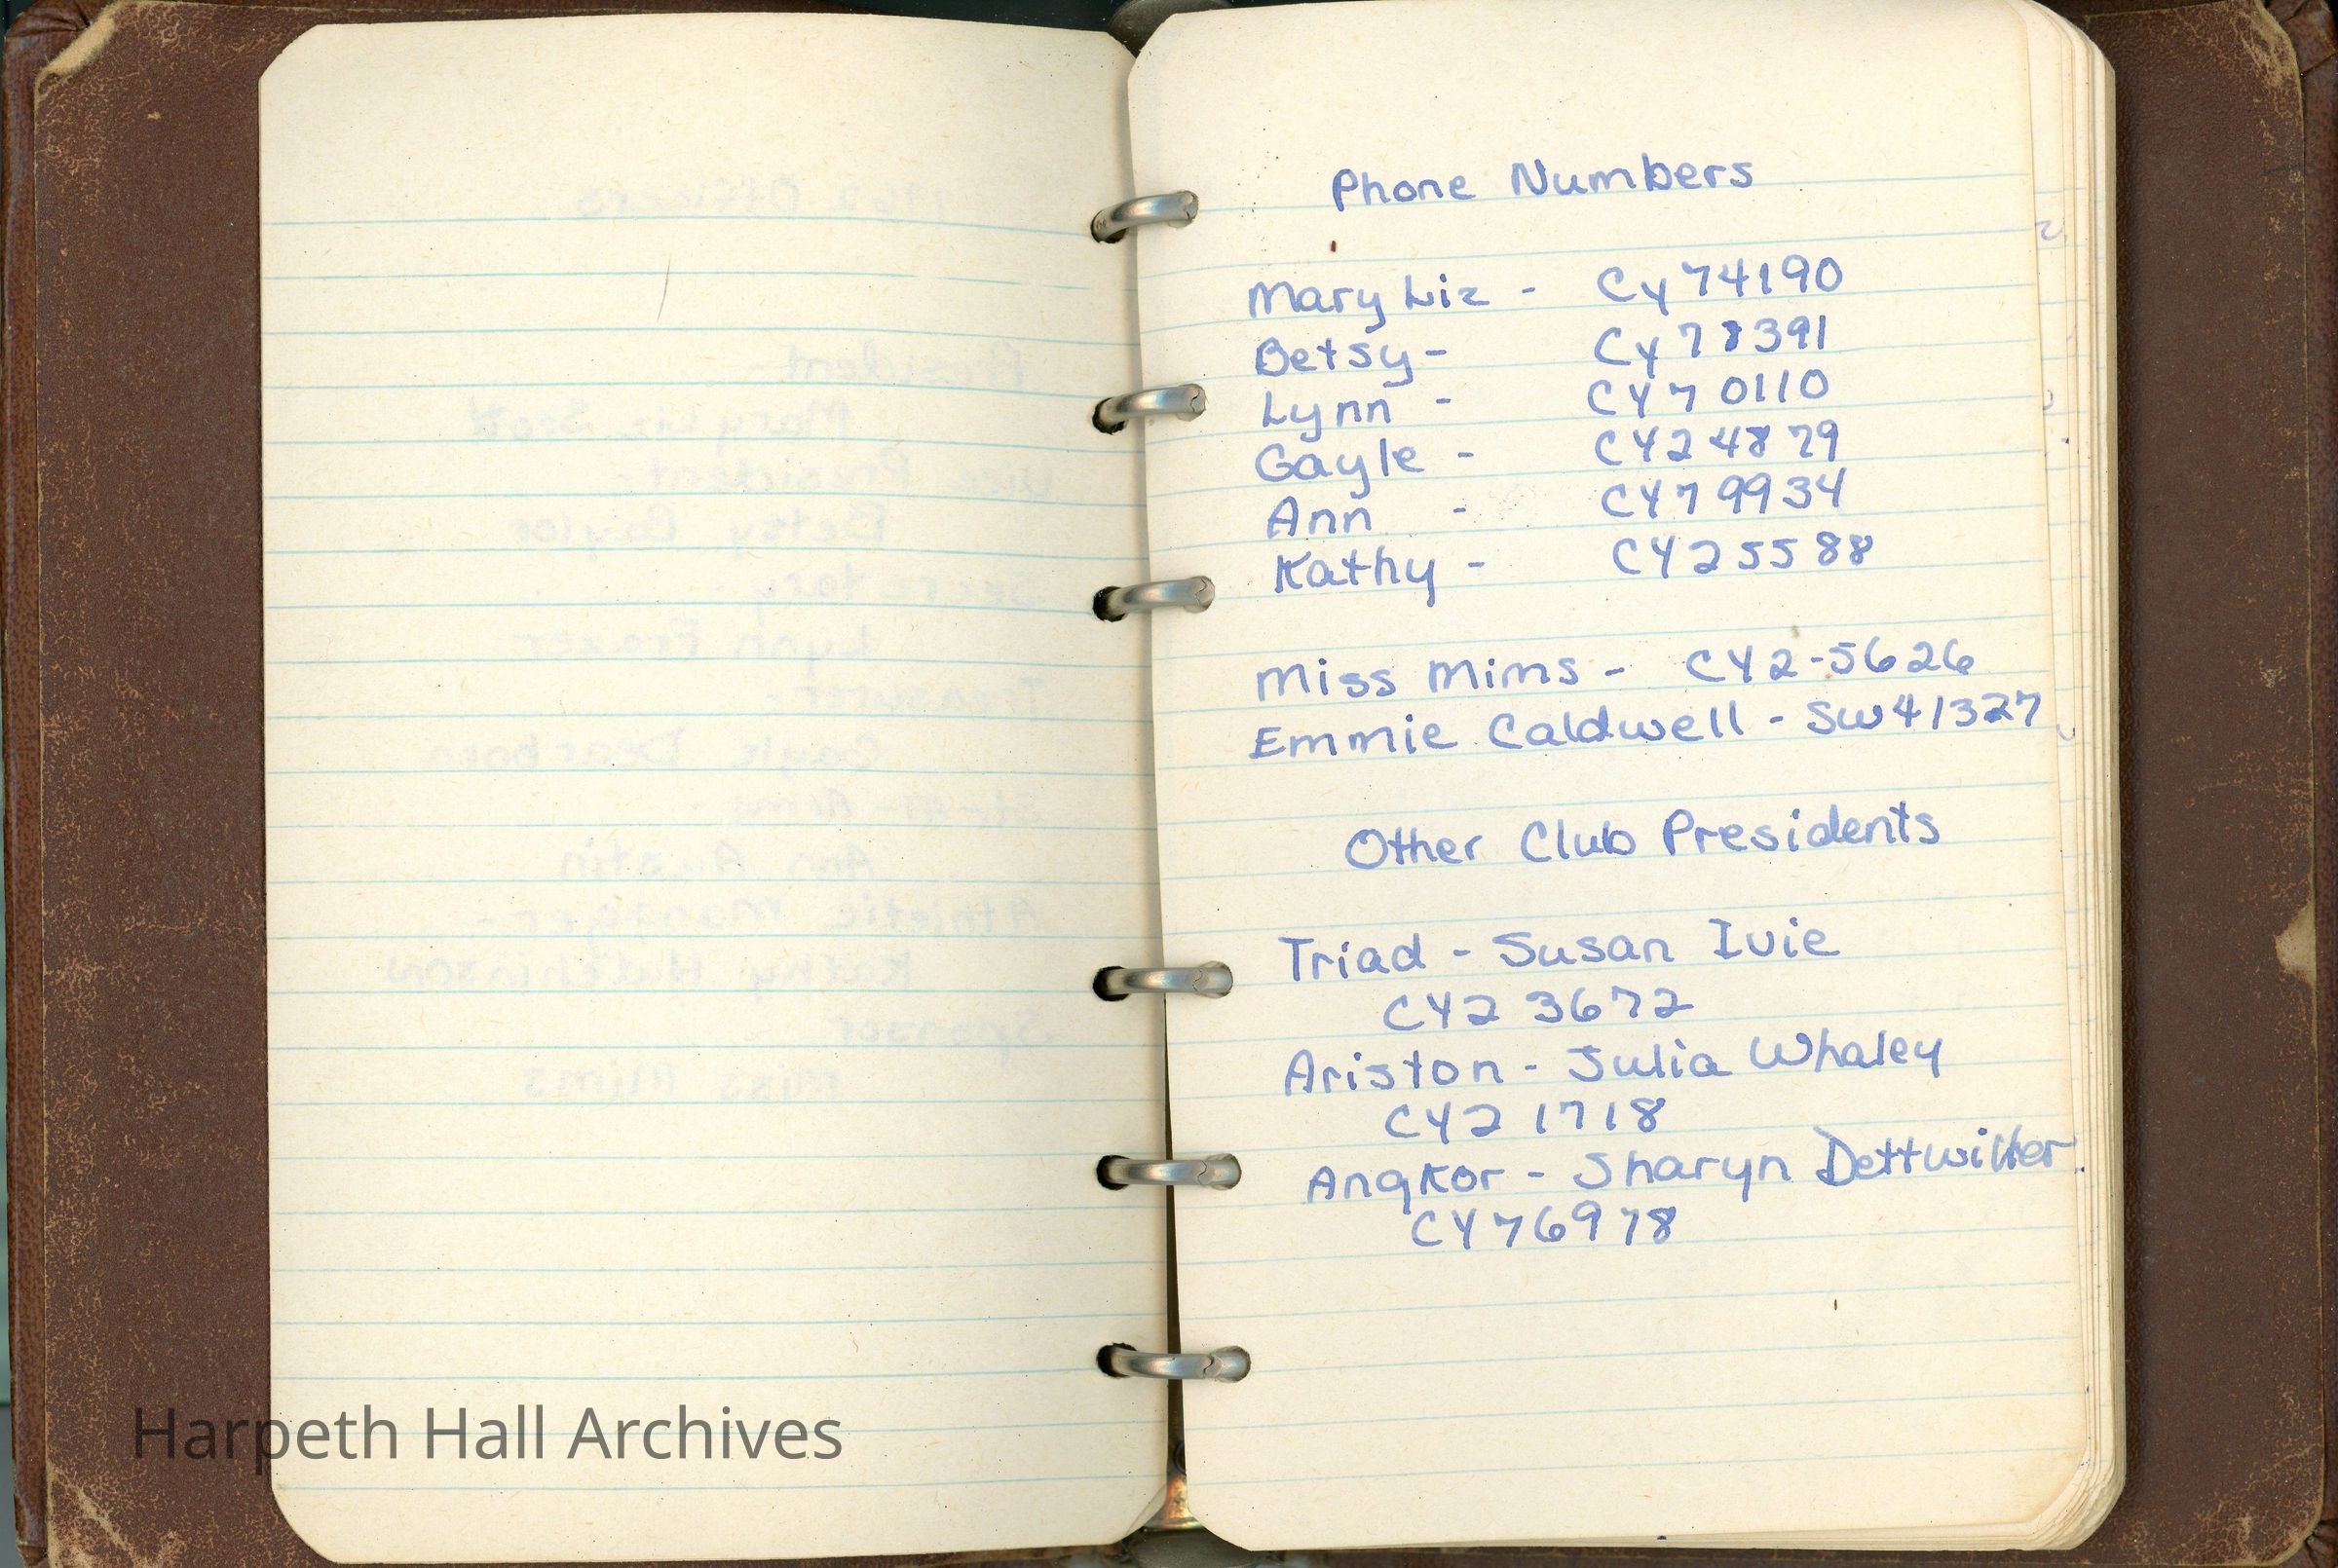 Phone Numbers
Mary Liz - Cy74190
Betsy - Cy78391
Lynn - CY70110
Gayle - CY24879
Ann - CY79934
Kathy - CY25588
Miss Mims - CY2-5626
Emmie Caldwell - SW41327
Other Club Presidents
Triad - Susan Ivie
CY2 3672
Ariston - Julia Whaley
CY2 1718
Angkor - Sharyn Dettwiller
CY76978
Harpeth Hall Archives